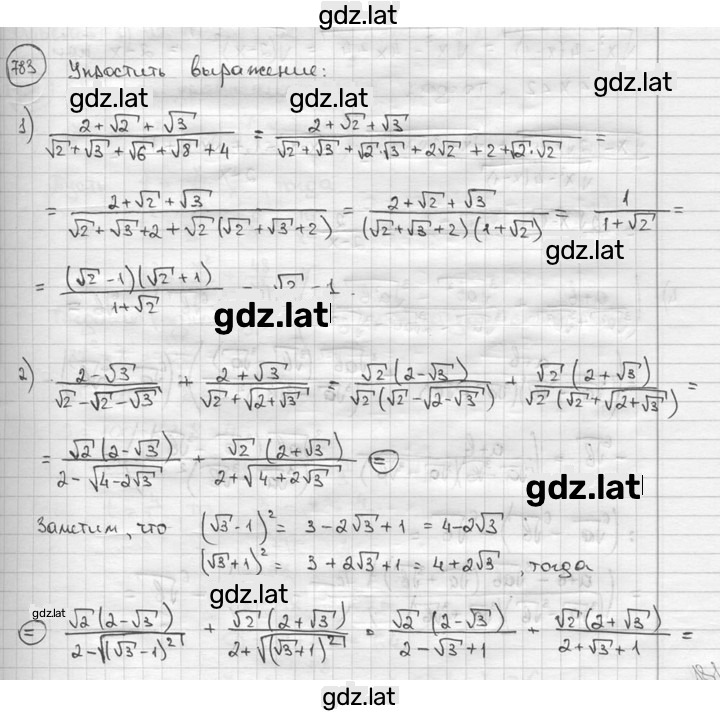 gdz.lat
783 Упростить выражение:
gdz.lat gdz.lat gdz.lat
1) (2+√2+√3)/(√2+√3+√6+√8+4) = (2+√2+√3)/(√2+√3+√2·√3+2√2+2+√2·√2) =
= (2+√2+√3)/(√2+√3+2+√2(√2+√3+2)) = (2+√2+√3)/((√2+√3+2)(1+√2)) = 1/(1+√2) =
gdz.lat
= ((√2-1)(√2+1))/(1+√2) - √2-1.
gdz.lat
2) (2-√3)/(√2-√2-√3) + (2+√3)/(√2+√(2+√3)) = (√2(2-√3))/(√2(√2-√(2-√3))) + (√2(2+√3))/(√2(√2+√(2+√3))) =
= (√2(2-√3))/(2-√(4-2√3)) + (√2(2+√3))/(2+√(4+2√3)) =
gdz.lat
Заметим, что (√3-1)² = 3-2√3+1 = 4-2√3
(√3+1)² = 3+2√3+1 = 4+2√3, тогда
gdz.lat gdz.lat
= (√2(2-√3))/(2-√((√3-1)²)) + (√2(2+√3))/(2+√((√3+1)²)) = (√2(2-√3))/(2-√3+1) + (√2(2+√3))/(2+√3+1) =
gdz.lat